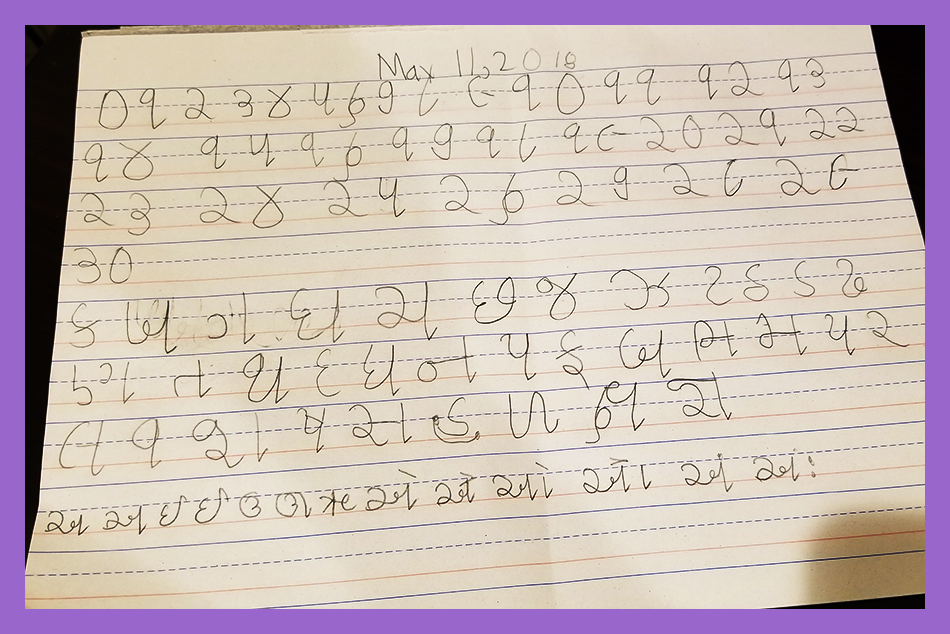 May 11, 2018
૦ ૧ ૨ ૩ ૪ ૫ ૬ ૭ ૮ ૯ ૧૦ ૧૧ ૧૨ ૧૩
૧૪ ૧૫ ૧૬ ૧૭ ૧૮ ૧૯ ૨૦ ૨૧ ૨૨
૨૩ ૨૪ ૨૫ ૨૬ ૨૭ ૨૮ ૨૯
૩૦
ક ખ ગ ઘ ચ છ જ ઝ ટ ઠ ડ ઢ
ણ ત થ દ ધ ન પ ફ બ ભ મ ય ર
લ વ શ ષ સ હ ળ ક્ષ જ્ઞ
અ આ ઇ ઈ ઉ ઊ ઋ એ ઐ ઓ ઔ અં અઃ